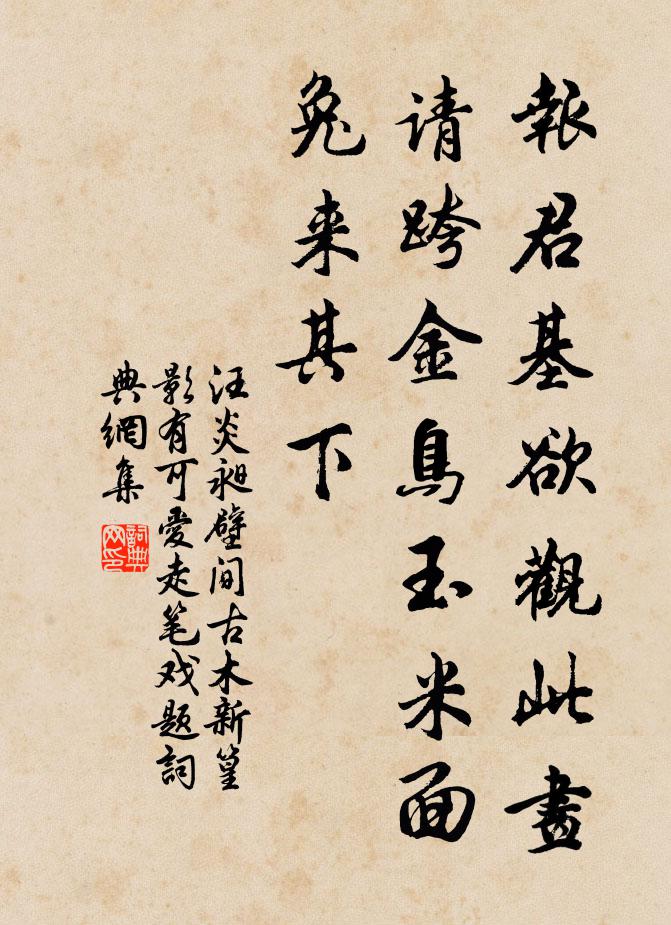 報君基欲觀此畫
请跨金鳥玉米面
兔来其下
汪炎昶壁间古木新篁
影有可愛走笔戏题詞
典網集
詞典网印